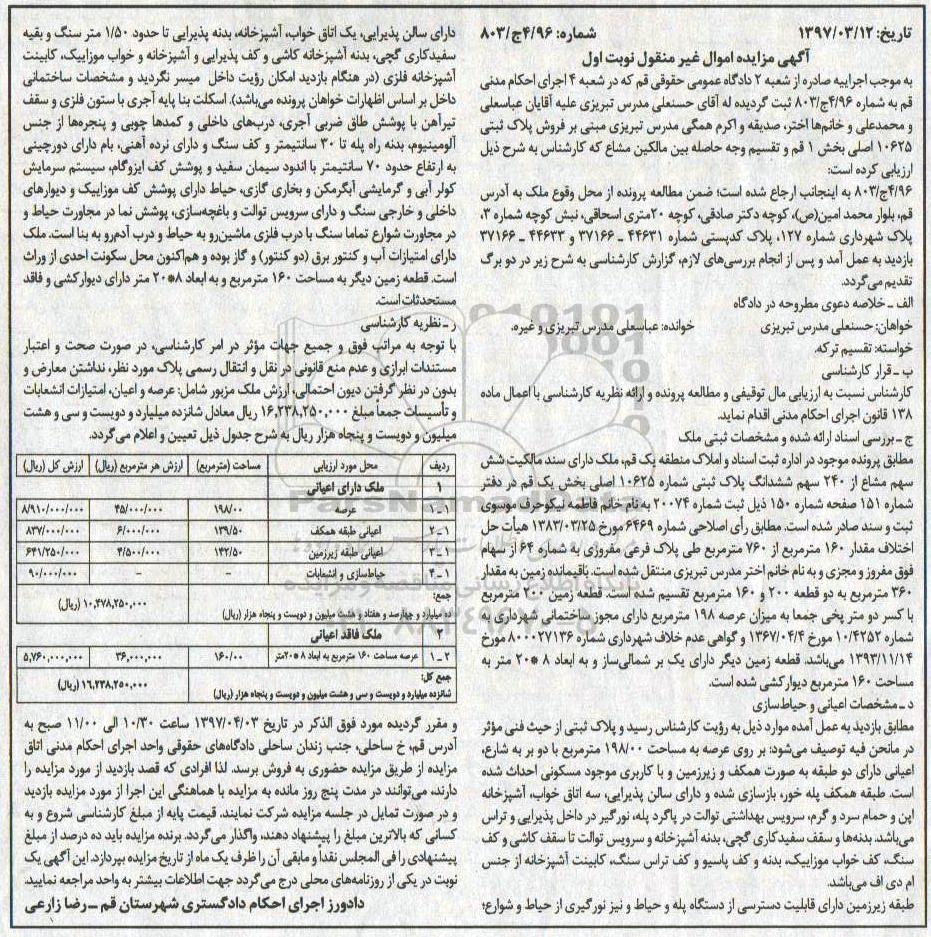 تاریخ: ۱۳۹۷/۰۳/۱۲ شماره: ۴/۹۶ج/۸۰۳
آگهی مزایده اموال غیر منقول نوبت اول
به موجب اجراییه صادره از شعبه ۲ دادگاه عمومی حقوقی قم که در شعبه ۴ اجرای احکام مدنی
قم به شماره ۴/۹۶ج/۸۰۳ ثبت گردیده له آقای حسنعلی مدرس تبریزی علیه آقایان عباسعلی
و محمدعلی و خانم‌ها اختر، صدیقه و اکرم همگی مدرس تبریزی مبنی بر فروش پلاک ثبتی
۱۰۶۲۵ اصلی بخش ۱ قم و تقسیم وجه حاصله بین مالکین مشاع که کارشناس به شرح ذیل
ارزیابی کرده است:
۴/۹۶ج/۸۰۳ به اینجانب ارجاع شده است؛ ضمن مطالعه پرونده از محل وقوع ملک به آدرس
قم، بلوار محمد امین(ص)، کوچه دکتر صادقی، کوچه ۲۰متری اسحاقی، نبش کوچه شماره ۳،
پلاک شهرداری شماره ۱۲۷، پلاک کدپستی شماره ۴۴۶۳۱ ـ ۳۷۱۶۶ و ۴۴۶۳۳ ـ ۳۷۱۶۶
بازدید به عمل آمد و پس از انجام بررسی‌های لازم، گزارش کارشناسی به شرح زیر در دو برگ
تقدیم می‌گردد.
الف ـ خلاصه دعوی مطروحه در دادگاه
خواهان: حسنعلی مدرس تبریزی خوانده: عباسعلی مدرس تبریزی و غیره.
خواسته: تقسیم ترکه.
ب ـ قرار کارشناسی
کارشناس نسبت به ارزیابی مال توقیفی و مطالعه پرونده و ارائه نظریه کارشناسی با اعمال ماده
۱۳۸ قانون اجرای احکام مدنی اقدام نماید.
ج ـ بررسی اسناد ارائه شده و مشخصات ثبتی ملک
مطابق پرونده موجود در اداره ثبت اسناد و املاک منطقه یک قم، ملک دارای سند مالکیت شش
سهم مشاع از ۲۴۰ سهم ششدانگ پلاک ثبتی شماره ۱۰۶۲۵ اصلی بخش یک قم در دفتر
شماره ۱۵۱ صفحه شماره ۱۵۰ ذیل ثبت شماره ۲۰۰۷۴ به نام خانم فاطمه نیکوحرف موسوی
ثبت و سند صادر شده است. مطابق رأی اصلاحی شماره ۶۴۶۹ مورخ ۱۳۸۳/۰۳/۲۵ هیأت حل
اختلاف مقدار ۱۶۰ مترمربع از ۷۶۰ مترمربع طی پلاک فرعی مفروزی به شماره ۶۴ از سهام
فوق مفروز و مجزی و به نام خانم اختر مدرس تبریزی منتقل شده است. باقیمانده زمین به مقدار
۳۶۰ مترمربع به دو قطعه ۲۰۰ و ۱۶۰ مترمربع تقسیم شده است. قطعه زمین ۲۰۰ مترمربع
با کسر دو متر پخی جمعا به میزان عرصه ۱۹۸ مترمربع دارای مجوز ساختمانی شهرداری به
شماره ۱۰/۴۲۵۲ مورخ ۱۳۶۷/۰۴/۴ و گواهی عدم خلاف شهرداری شماره ۸۰۰۰۲۷۱۳۶ مورخ
۱۳۹۳/۱۱/۱۴ می‌باشد. قطعه زمین دیگر دارای یک بر شمالی‌ساز و به ابعاد ۸ *۲۰ متر به
مساحت ۱۶۰ مترمربع دیوارکشی شده است.
د ـ مشخصات اعیانی و حیاط‌سازی
مطابق بازدید به عمل آمده موارد ذیل به رؤیت کارشناس رسید و پلاک ثبتی از حیث فنی مؤثر
در مانحن فیه توصیف می‌شود: بر روی عرصه به مساحت ۱۹۸/۰۰ مترمربع با دو بر به شارع،
اعیانی دارای دو طبقه به صورت همکف و زیرزمین و با کاربری موجود مسکونی احداث شده
است. طبقه همکف پله خور، بازسازی شده و دارای سالن پذیرایی، سه اتاق خواب، آشپزخانه
اپن و حمام سرد و گرم، سرویس بهداشتی توالت در پاگرد پله، نورگیر در داخل پذیرایی و تراس
می‌باشد. بدنه‌ها و سقف سفیدکاری گچی، بدنه آشپزخانه و سرویس توالت تا سقف کاشی و کف
سنگ، کف خواب موزاییک، بدنه و کف پاسیو و کف تراس سنگ، کابینت آشپزخانه از جنس
ام دی اف می‌باشد.
طبقه زیرزمین دارای قابلیت دسترسی از دستگاه پله و حیاط و نیز نورگیری از حیاط و شوارع؛
دارای سالن پذیرایی، یک اتاق خواب، آشپزخانه، بدنه پذیرایی تا حدود ۱/۵۰ متر سنگ و بقیه
سفیدکاری گچی، بدنه آشپزخانه کاشی و کف پذیرایی و آشپزخانه و خواب موزاییک، کابینت
آشپزخانه فلزی (در هنگام بازدید امکان رؤیت داخل میسر نگردید و مشخصات ساختمانی
داخل بر اساس اظهارات خواهان پرونده می‌باشد). اسکلت بنا پایه آجری با ستون فلزی و سقف
تیرآهن با پوشش طاق ضربی آجری، درب‌های داخلی و کمدها چوبی و پنجره‌ها از جنس
آلومینیوم، بدنه راه پله تا ۳۰ سانتیمتر و کف سنگ و دارای نرده آهنی، بام دارای دورچینی
به ارتفاع حدود ۷۰ سانتیمتر با اندود سیمان سفید و پوشش کف ایزوگام، سیستم سرمایش
کولر آبی و گرمایشی آبگرمکن و بخاری گازی، حیاط دارای پوشش کف موزاییک و دیوارهای
داخلی و خارجی سنگ و دارای سرویس توالت و باغچه‌سازی، پوشش نما در مجاورت حیاط و
در مجاورت شوارع تماما سنگ با درب فلزی ماشین‌رو به حیاط و درب آدم‌رو به بنا است. ملک
دارای امتیازات آب و کنتور برق (دو کنتور) و گاز بوده و هم‌اکنون محل سکونت احدی از وراث
است. قطعه زمین دیگر به مساحت ۱۶۰ مترمربع و به ابعاد ۸*۲۰ متر دارای دیوارکشی و فاقد
مستحدثات است.
ر ـ نظریه کارشناسی
با توجه به مراتب فوق و جمیع جهات مؤثر در امر کارشناسی، در صورت صحت و اعتبار
مستندات ابرازی و عدم منع قانونی در نقل و انتقال رسمی پلاک مورد نظر، نداشتن معارض و
بدون در نظر گرفتن دیون احتمالی، ارزش ملک مزبور شامل: عرصه و اعیان، امتیازات انشعابات
و تأسیسات جمعا مبلغ ۱۶,۲۳۸,۲۵۰,۰۰۰ ریال معادل شانزده میلیارد و دویست و سی و هشت
میلیون و دویست و پنجاه هزار ریال به شرح جدول ذیل تعیین و اعلام می‌گردد.
ردیف محل مورد ارزیابی مساحت (مترمربع) ارزش هر مترمربع (ریال) ارزش کل (ریال)
۱ ملک دارای اعیانی
۱ ـ ۱ عرصه ۱۹۸/۰۰ ۴۵/۰۰۰/۰۰۰ ۸/۹۱۰/۰۰۰/۰۰۰
۲ ـ ۱ اعیانی طبقه همکف ۱۳۹/۵۰ ۶/۰۰۰/۰۰۰ ۸۳۷/۰۰۰/۰۰۰
۳ ـ ۱ اعیانی طبقه زیرزمین ۱۴۲/۵۰ ۴/۵۰۰/۰۰۰ ۶۴۱/۲۵۰/۰۰۰
۴ ـ ۱ حیاط‌سازی و انشعابات – – ۹۰/۰۰۰/۰۰۰
جمع: ۱۰,۴۷۸,۲۵۰,۰۰۰ (ریال)
ده میلیارد و چهارصد و هفتاد و هشت میلیون و دویست و پنجاه هزار (ریال)
۲ ملک فاقد اعیانی
۱ ـ ۲ عرصه مساحت ۱۶۰ مترمربع به ابعاد ۸*۲۰متر ۱۶۰/۰۰ ۳۶,۰۰۰,۰۰۰ ۵,۷۶۰,۰۰۰,۰۰۰
جمع کل: ۱۶,۲۳۸,۲۵۰,۰۰۰ (ریال)
شانزده میلیارد و دویست و سی و هشت میلیون و دویست و پنجاه هزار (ریال)
و مقرر گردیده مورد فوق الذکر در تاریخ ۱۳۹۷/۰۴/۰۳ ساعت ۱۰/۳۰ الی ۱۱/۰۰ صبح به
آدرس قم، خ ساحلی، جنب زندان ساحلی دادگاه‌های حقوقی واحد اجرای احکام مدنی اتاق
مزایده از طریق مزایده حضوری به فروش برسد. لذا افرادی که قصد بازدید از مورد مزایده را
دارند، می‌توانند در مدت پنج روز مانده به مزایده با هماهنگی این اجرا از مورد مزایده بازدید
و در صورت تمایل در جلسه مزایده شرکت نمایند. قیمت پایه از مبلغ کارشناسی شروع و به
کسانی که بالاترین مبلغ را پیشنهاد دهند، واگذار می‌گردد. برنده مزایده باید ده درصد از مبلغ
پیشنهادی را فی المجلس نقداً و مابقی آن را ظرف یک ماه از تاریخ مزایده بپردازد. این آگهی یک
نوبت در یکی از روزنامه‌های محلی درج می‌گردد جهت اطلاعات بیشتر به واحد مراجعه نمایید.
دادورز اجرای احکام دادگستری شهرستان قم ـ رضا زارعی
ParsNamadData